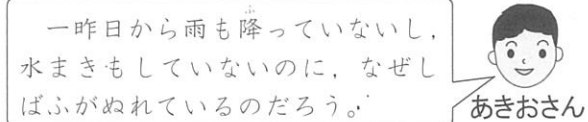 一昨日から雨も降っていないし，
水まきもしていないのに，なぜし
ばふがぬれているのだろう。
ふ
あきおさん